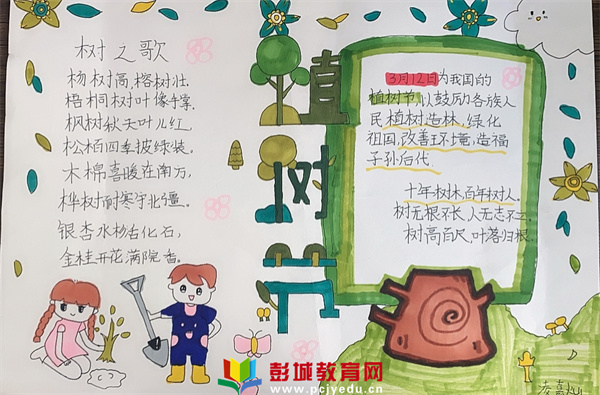 树之歌
杨树高,榕树壮,
梧桐树叶像手掌。
枫树秋天叶儿红,
松柏四季披绿装。
木棉喜暖在南方,
桦树耐寒守北疆。
银杏水杉活化石,
金桂开花满院香。
植树节
3月12日为我国的
植树节,以鼓励各族人
民植树造林,绿化
祖国,改善环境,造福
子孙后代。
十年树木,百年树人。
树无根不长,人无志不立。
树高百尺,叶落归根。
彭城教育网
www.pcjyedu.cn